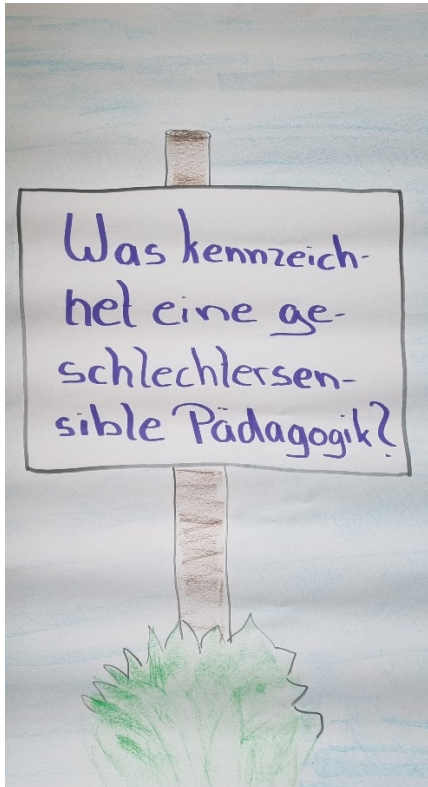 Was kennzeich-
net eine ge-
schlechtersen-
sible Pädagogik?